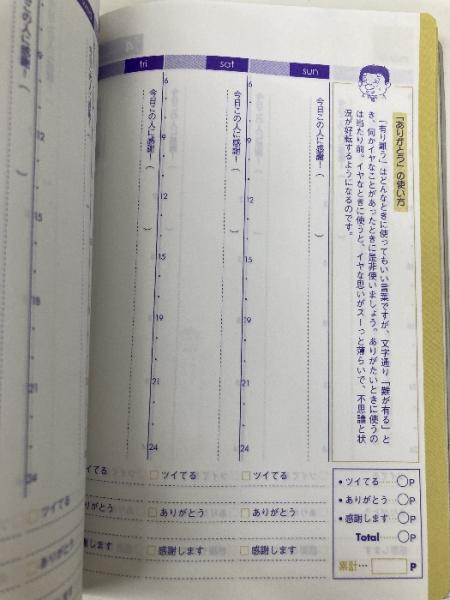 「ありがとう」の使い方
「有り難う」はどんなときに使ってもいい言葉ですが、文字通り「難が有る」と
き、何かイヤなことがあったときに是非使いましょう。ありがたいときに使うの
は当たり前。イヤなときに使うと、イヤな思いがスーっと薄らいで、不思議と状
況が好転するようになるのです。
• ツイてる ○P
• ありがとう ○P
• 感謝します ○P
Total ○P
累計 P
sun
今日この人に感謝!( )
6
9
12
15
19
21
24
□ ツイてる
□ ありがとう
□ 感謝します
sat
今日この人に感謝!( )
6
9
12
15
19
21
24
□ ツイてる
□ ありがとう
□ 感謝します
fri
ツイてる
ありがとう
感謝します
この人に感謝!(
9
12
15
18
21
24
□ ツイてる